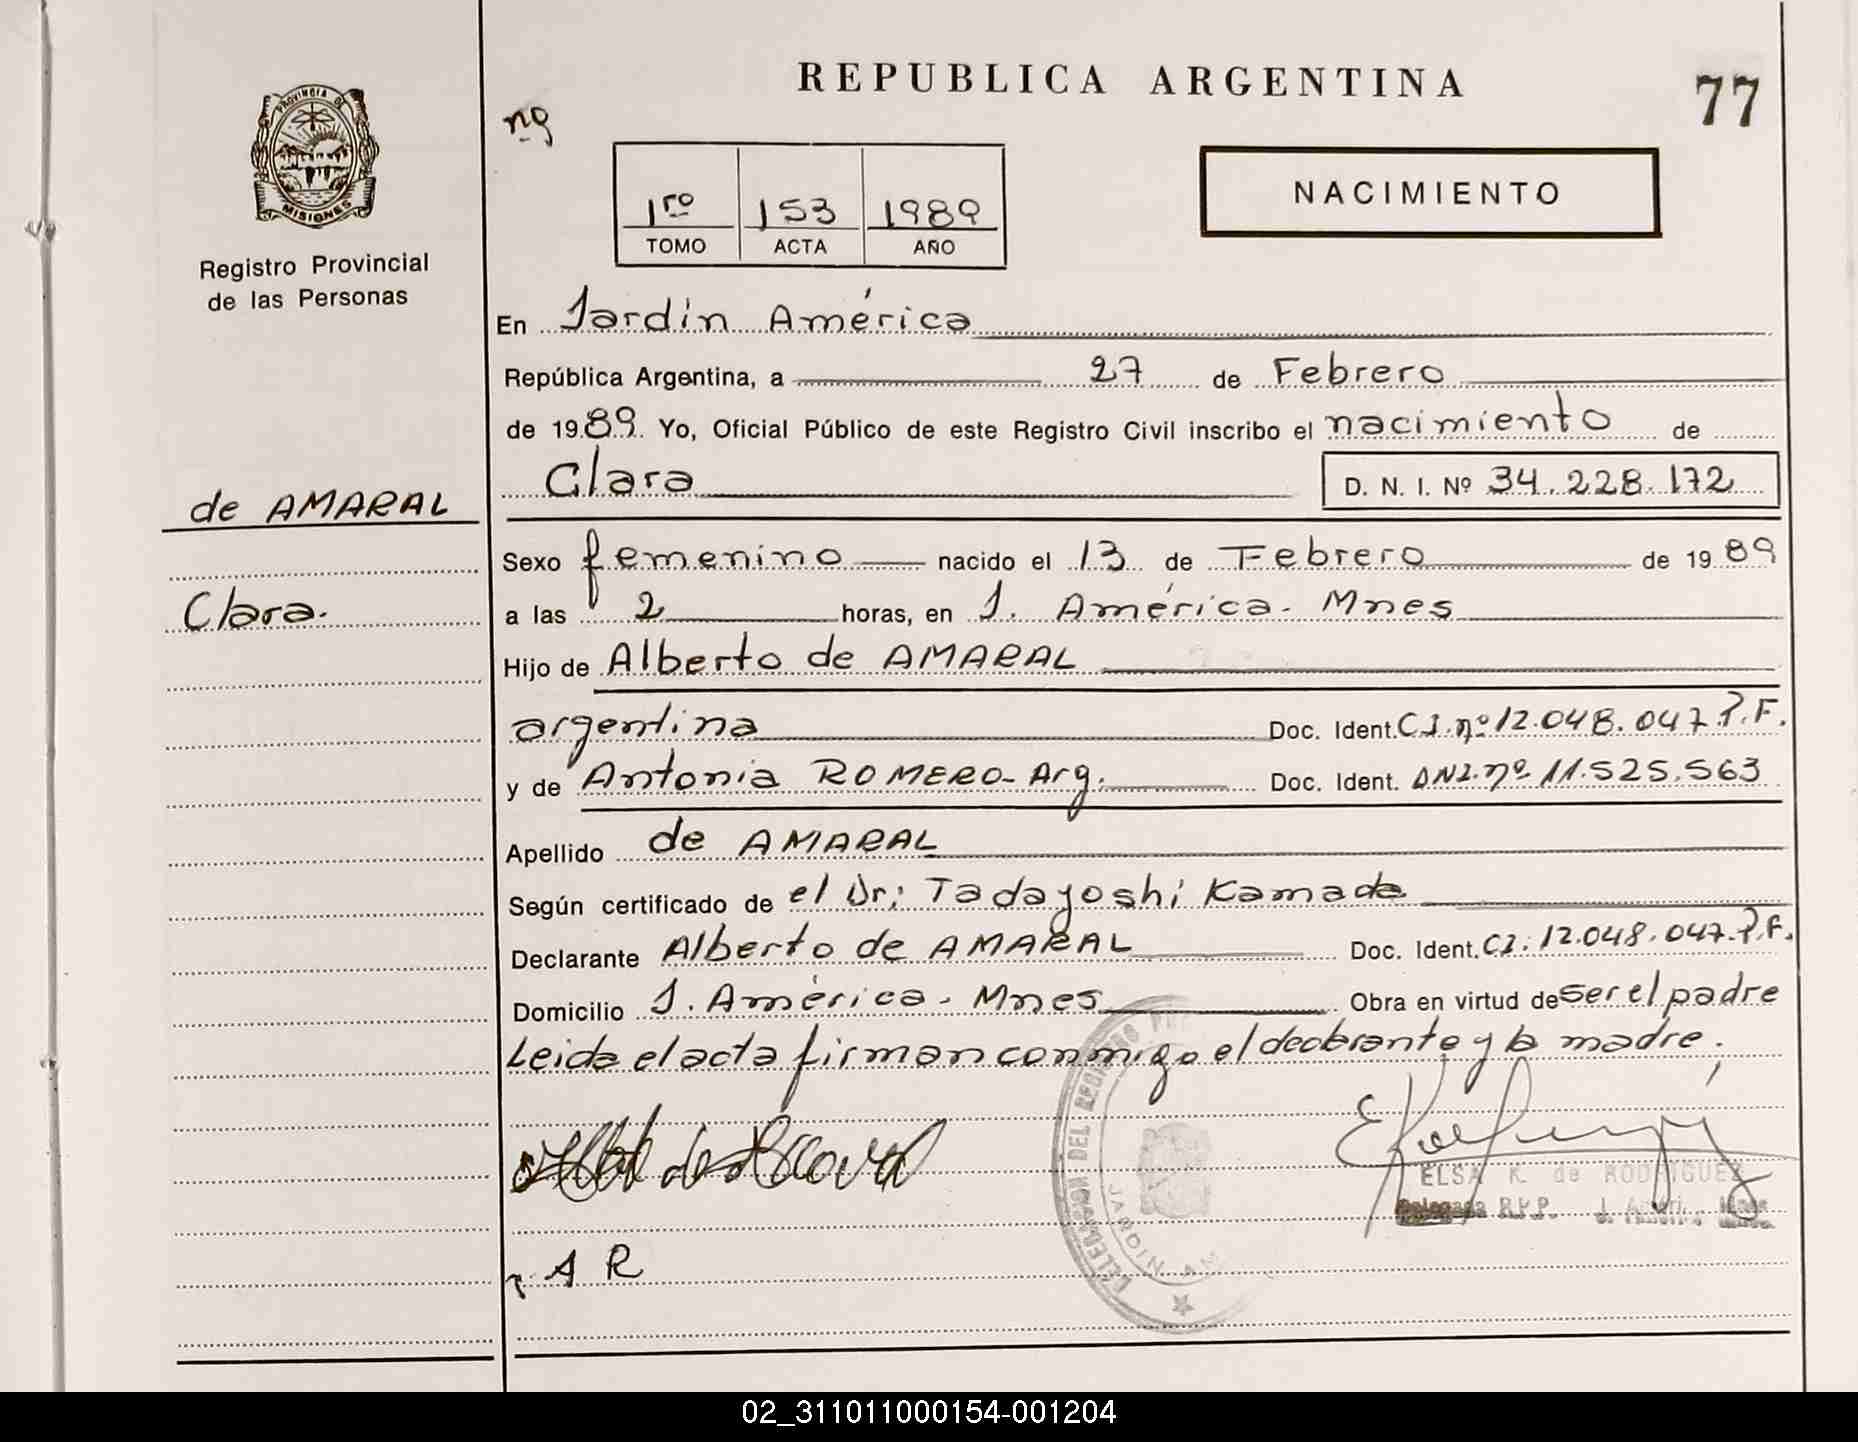 REPUBLICA ARGENTINA
77
PROVINCIA DE
MISIONES
Registro Provincial
de las Personas
1ro 153 1989
TOMO ACTA AÑO
NACIMIENTO
En Jardín América
República Argentina, a 27 de Febrero
de 1989 Yo, Oficial Público de este Registro Civil inscribo el nacimiento de
Clara D. N. I. Nº 34.228.172
de AMARAL
Clara.
Sexo femenino nacido el 13 de Febrero de 1989
a las 2 horas, en J. América. Mnes
Hijo de Alberto de AMARAL
argentina Doc. Ident. C.I. nº 12.048.047 P.F.
y de Antonia ROMERO- Arg. Doc. Ident. DNI. nº 11.525.563
Apellido de AMARAL
Según certificado de el Dr; Tadayoshi Kamada
Declarante Alberto de AMARAL Doc. Ident. CI: 12.048.047.P.F.
Domicilio J. América. Mnes Obra en virtud de ser el padre
Leida el acta firman conmigo el declarante y la madre.
ELSA K. de RODRIGUEZ
Delegada R.P.P. J. Améri. Mnes
DELEGACION DEL REGISTRO
JARDIN AM
A R
02_311011000154-001204